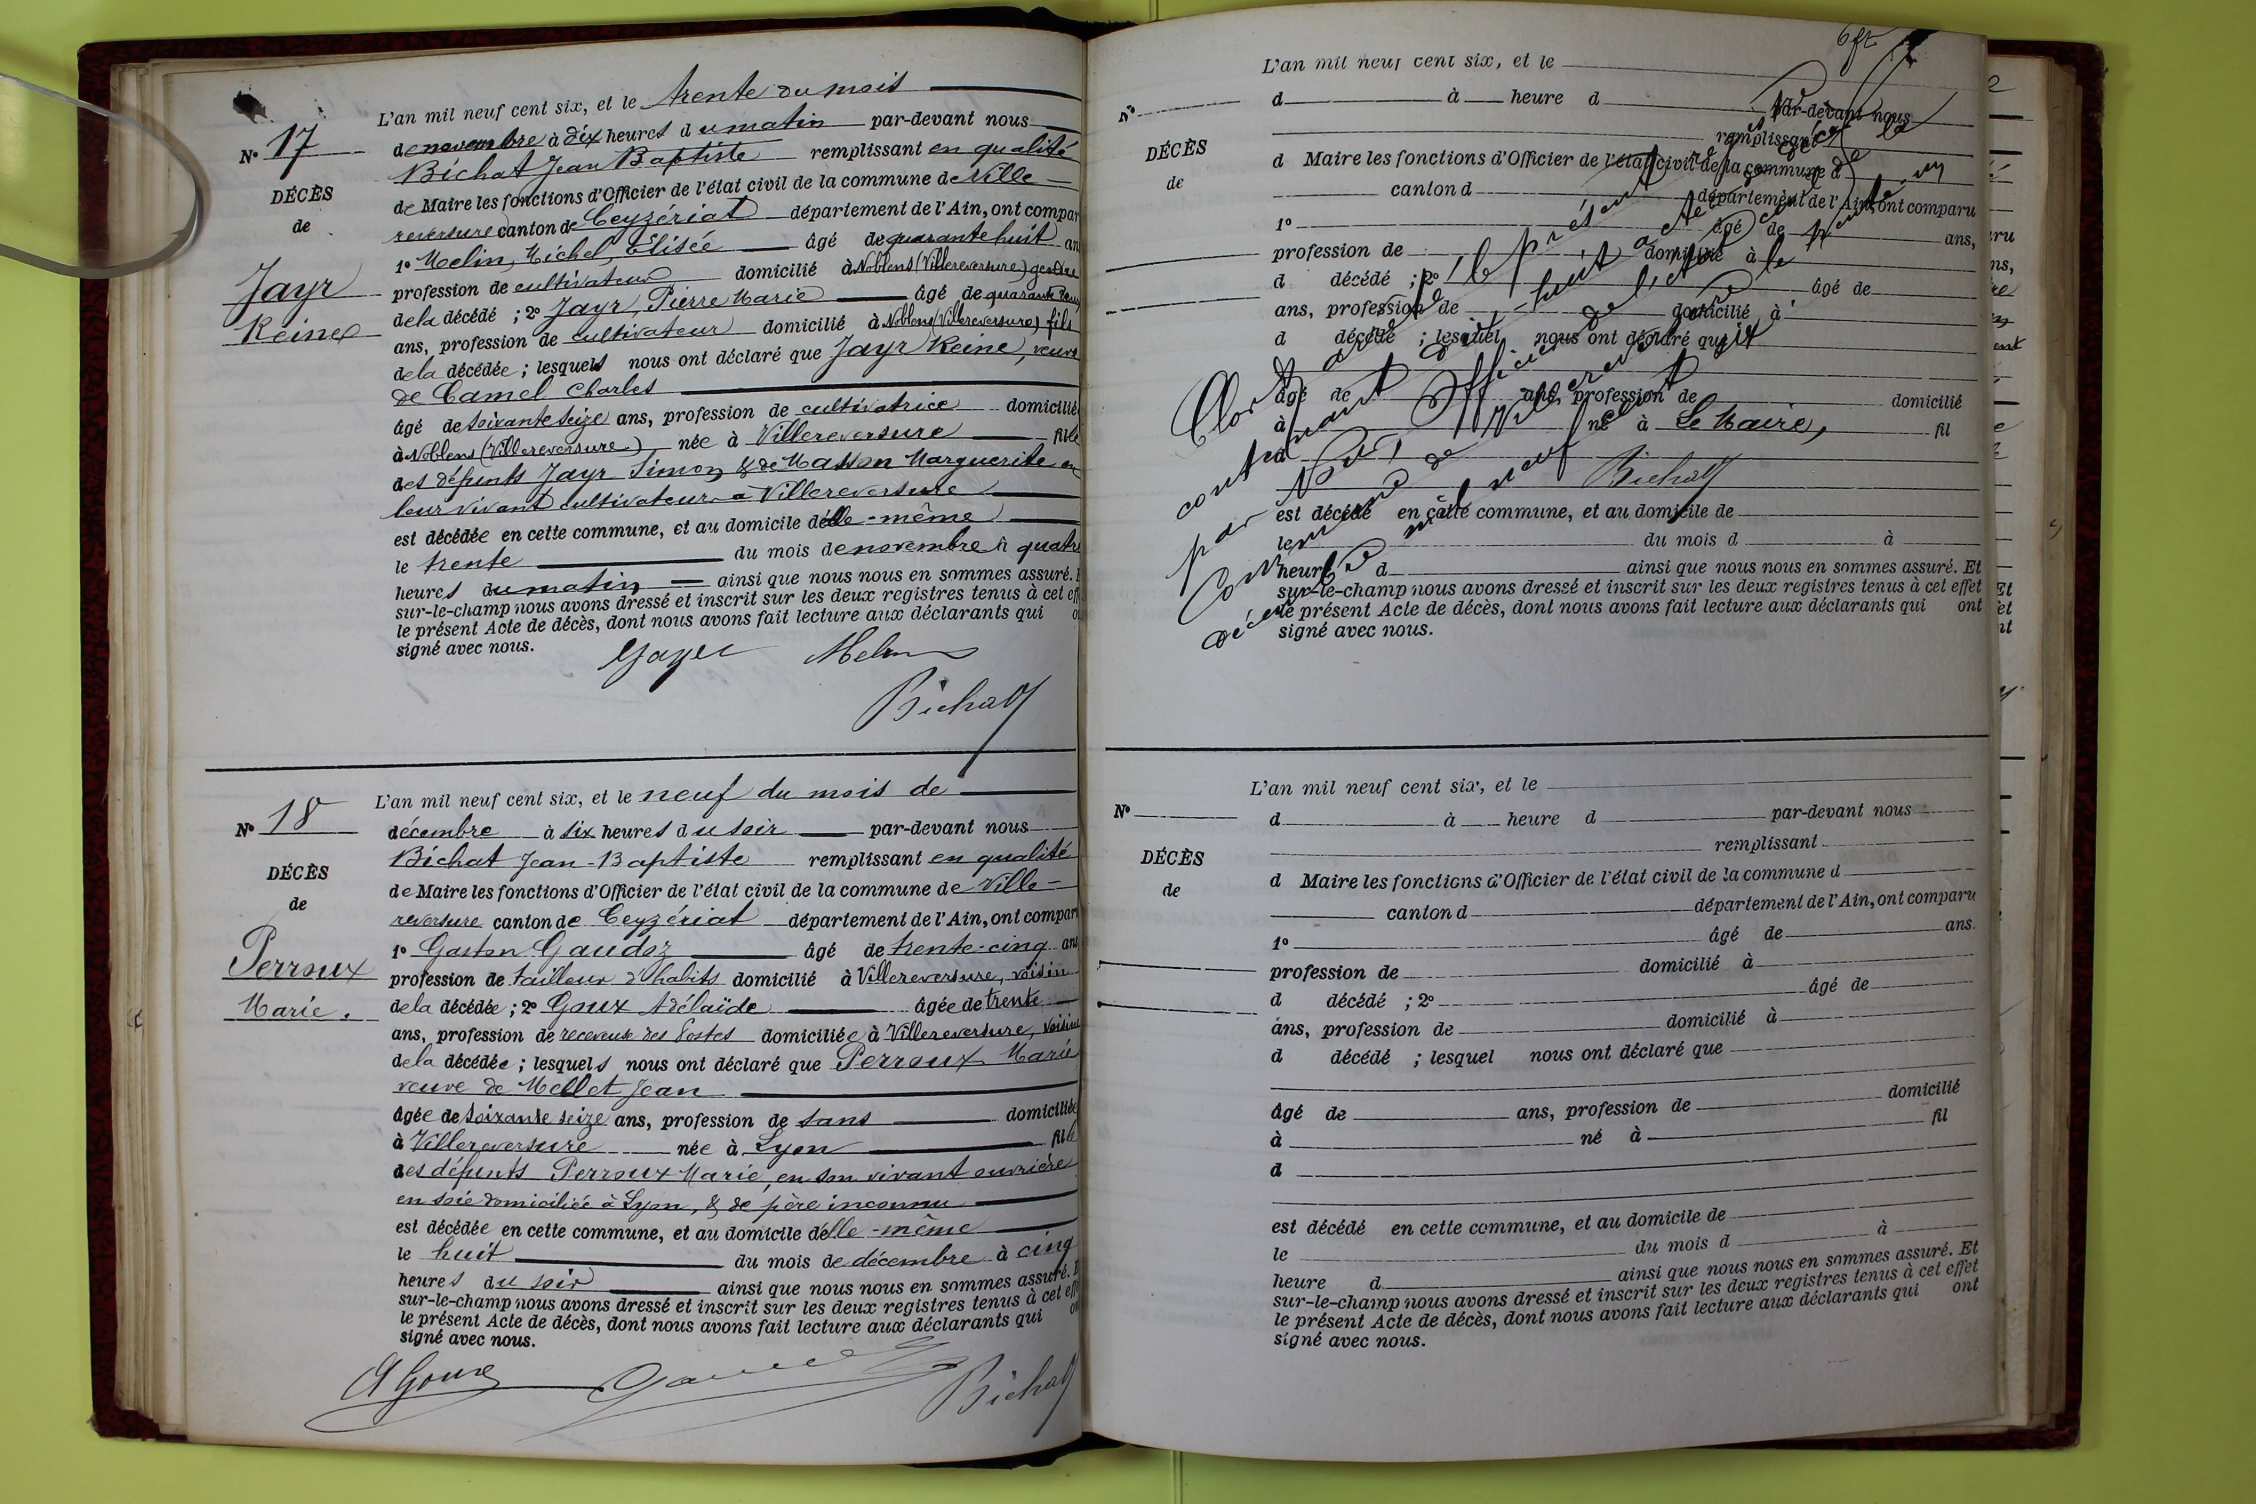 L'an mil neuf cent six, et le trente du mois
No 17
de novembre à dix heures du matin par-devant nous
Bichat Jean Baptiste remplissant en qualité
DÉCÈS
de Maire les fonctions d'Officier de l'état civil de la commune de Ville
de
reversure canton de Ceyzériat département de l'Ain, ont compar
1o Melin, Michel, Elisée âgé de quarante huit an
Jayr
profession de cultivateur domicilié à Noblens (Villereversure) gendre
Reine
de la décédé ; 2o Jayr, Pierre Marie âgé de quarante
ans, profession de cultivateur domicilié à Noblens (Villereversure) fils
de la décédée ; lesquels nous ont déclaré que Jayr Reine, veuve
de Camel Charles
âgé de soixante seize ans, profession de cultivatrice domicilié
à Noblens (Villereversure) née à Villereversure fille
des défunts Jayr Simon & de Masson Marguerite en
leur vivant cultivateurs à Villereversure
est décédée en cette commune, et au domicile d'elle-même
le trente du mois de novembre à quatre
heures du matin ainsi que nous nous en sommes assuré. E
sur-le-champ nous avons dressé et inscrit sur les deux registres tenus à cet eff
le présent Acte de décès, dont nous avons fait lecture aux déclarants qui o
signé avec nous.
Melin
Bichat
L'an mil neuf cent six, et le neuf du mois de
No 18
décembre à six heures du soir par-devant nous
Bichat Jean-Baptiste remplissant en qualité
DÉCÈS
de Maire les fonctions d'Officier de l'état civil de la commune de Ville-
de
reversure canton de Ceyzériat département de l'Ain, ont compar
1o Gaston Gaudoz âgé de trente-cinq ans
Perroux
profession de tailleur d'habits domicilié à Villereversure, voisin
Marie.
de la décédée ; 2o Goux Adélaïde âgée de trente
ans, profession de receveuse des Postes domiciliée à Villereversure, voisine
de la décédée ; lesquels nous ont déclaré que Perroux Marie
veuve de Mellet Jean
âgée de soixante seize ans, profession de sans domiciliée
à Villereversure née à Lyon fille
des défunts Perroux Marie, en son vivant ouvrière
en soie domiciliée à Lyon, & de père inconnu
est décédée en cette commune, et au domicile d'elle-même
le huit du mois de décembre à cinq
heures du soir ainsi que nous nous en sommes assuré. E
sur-le-champ nous avons dressé et inscrit sur les deux registres tenus à cet effe
le présent Acte de décès, dont nous avons fait lecture aux déclarants qui on
signé avec nous.
A Goux
Bichat
6 ft
L'an mil neuf cent six, et le
No
d à heure d par-devant nous
remplissant
DÉCÈS
d Maire les fonctions d'Officier de l'état civil de la commune d
de
canton d département de l'Ain, ont comparu
1o âgé de ans,
profession de domicilié à
d décédé ; 2o âgé de
ans, profession de domicilié à
d décédé ; lesquel nous ont déclaré que
âgé de ans, profession de domicilié
à né à fil
d
est décédé en cette commune, et au domicile de
le du mois d à
heure d ainsi que nous nous en sommes assuré. Et
sur-le-champ nous avons dressé et inscrit sur les deux registres tenus à cet effet
le présent Acte de décès, dont nous avons fait lecture aux déclarants qui ont
signé avec nous.
Clos et arrêté le présent
contenant dix-huit actes
par Nous Officier de l'état civil de la
Commune de Villereversure le trente-un
décembre mil neuf cent six
Le Maire,
Bichat
L'an mil neuf cent six, et le
No
d à heure d par-devant nous
remplissant
DÉCÈS
d Maire les fonctions d'Officier de l'état civil de la commune d
de
canton d département de l'Ain, ont comparu
1o âgé de ans.
profession de domicilié à
d décédé ; 2o âgé de
ans, profession de domicilié à
d décédé ; lesquel nous ont déclaré que
âgé de ans, profession de domicilié
à né à fil
d
est décédé en cette commune, et au domicile de
le du mois d à
heure d ainsi que nous nous en sommes assuré. Et
sur-le-champ nous avons dressé et inscrit sur les deux registres tenus à cet effet
le présent Acte de décès, dont nous avons fait lecture aux déclarants qui ont
signé avec nous.